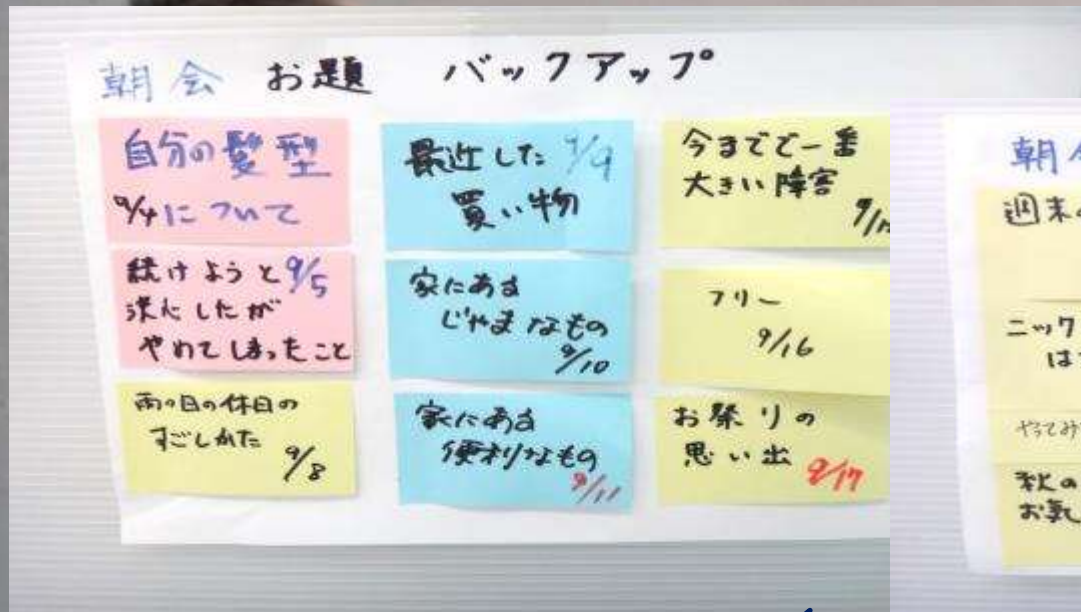 朝会 お題 バックアップ
自分の髪型
9/4について
続けようと 9/5
決心したが
やめてしまったこと
雨の日の休日の
すごしかた
9/8
最近した 9/9
買い物
家にある
じゃまなもの
9/10
家にある
便利なもの
9/11
今までで一番
大きい障害
フリー
9/16
お祭りの
思い出 9/17
朝
週末
ニック
は
やってみ
秋の
お気